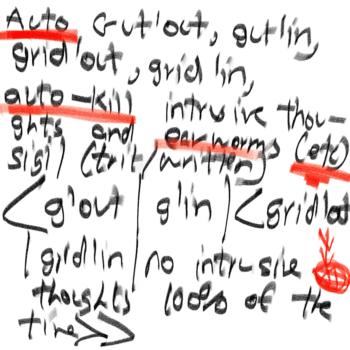 Auto Gut'out, gutlin,
grid'out, grid lin,
auto-kill intrusive thou-
ghts and earworms (etc)
sigil (writ/written)
<g'out | glin | <gridlout
|gridlin| no intrusive
thoughts 100% of the
time>>